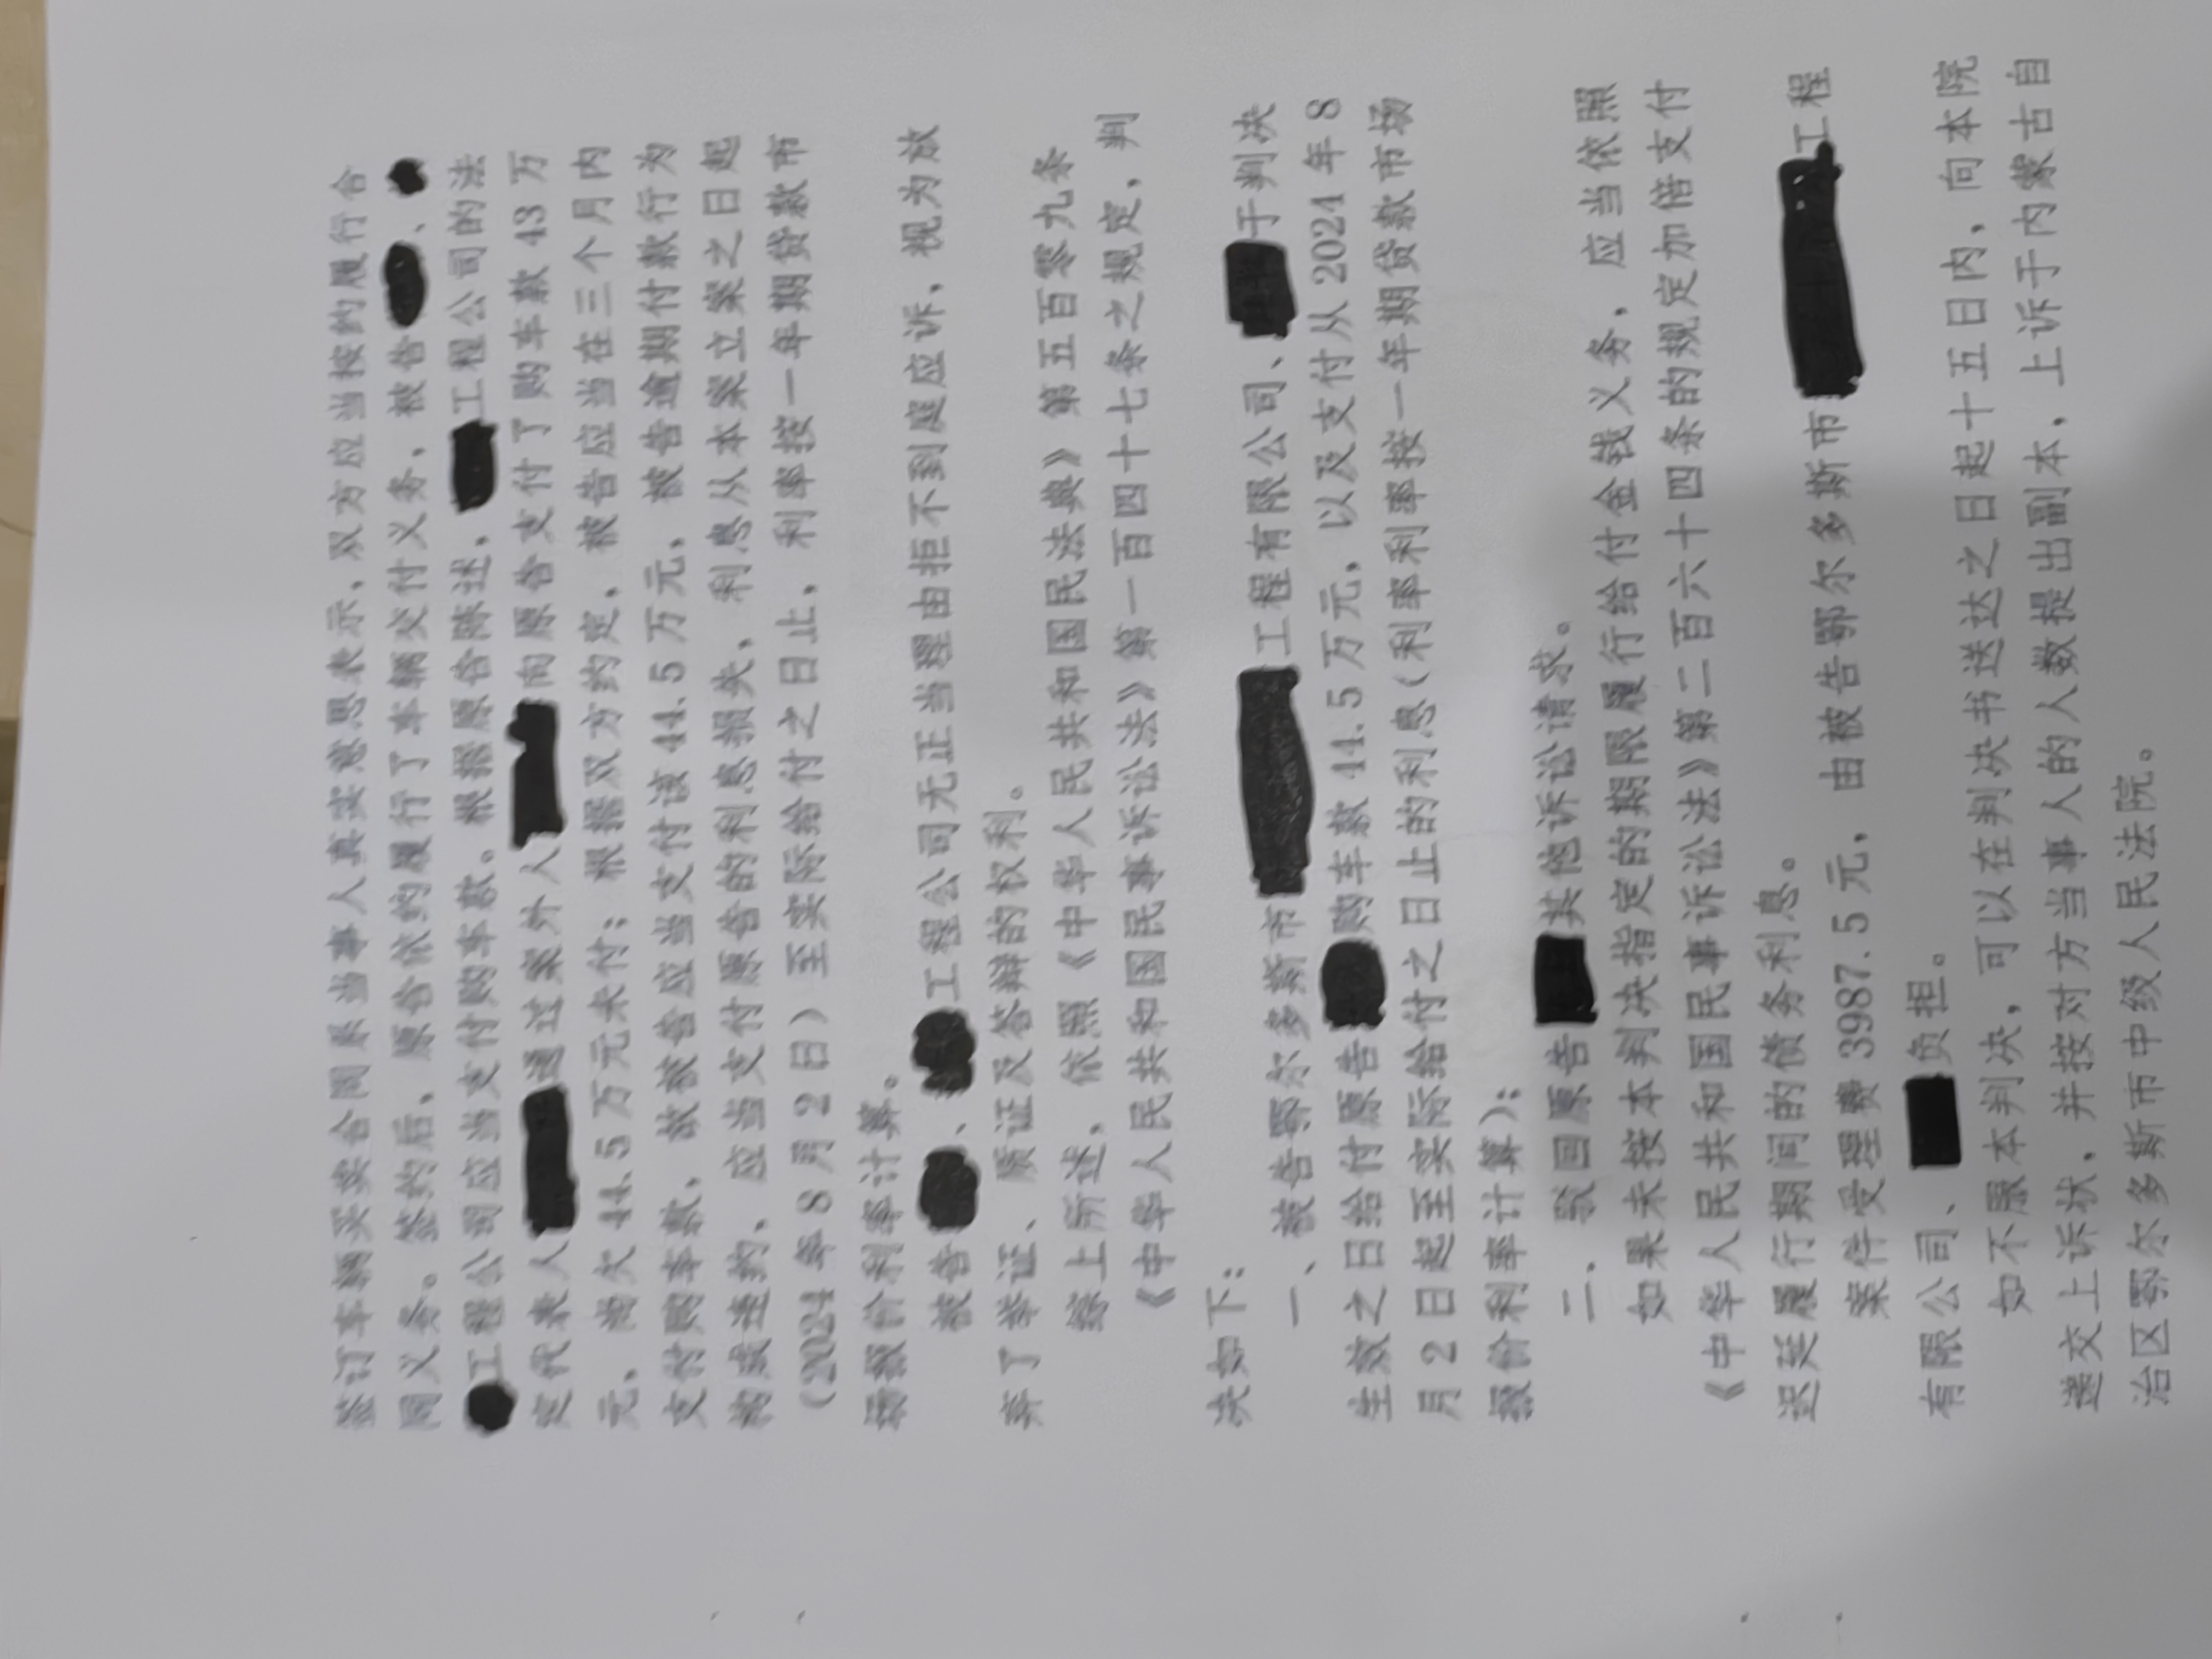 签订车辆买卖合同系当事人真实意思表示，双方应当按约履行合
同义务。签约后，原告依约履行了车辆交付义务，被告、
工程公司应当支付购车款。根据原告陈述，工程公司的法
定代表人通过案外人向原告支付了购车款 43 万
元，尚欠 44.5 万元未付；根据双方约定，被告应当在三个月内
支付购车款，故被告应当支付该 44.5 万元，被告逾期付款行为
构成违约，应当支付原告的利息损失，利息从本案立案之日起
（2024 年 8 月 2 日）至实际给付之日止，利率按一年期贷款市
场报价利率计算。
被告、工程公司无正当理由拒不到庭应诉，视为放
弃了举证、质证及答辩的权利。
综上所述，依照《中华人民共和国民法典》第五百零九条
《中华人民共和国民事诉讼法》第一百四十七条之规定，判
决如下：
一、被告鄂尔多斯市工程有限公司、于判决
生效之日给付原告购车款 44.5 万元，以及支付从 2024 年 8
月 2 日起至实际给付之日止的利息（利率利率按一年期贷款市场
报价利率计算）；
二、驳回原告其他诉讼请求。
如果未按本判决指定的期限履行给付金钱义务，应当依照
《中华人民共和国民事诉讼法》第二百六十四条的规定加倍支付
迟延履行期间的债务利息。
案件受理费 3987.5 元，由被告鄂尔多斯市工程
有限公司、负担。
如不服本判决，可以在判决书送达之日起十五日内，向本院
递交上诉状，并按对方当事人的人数提出副本，上诉于内蒙古自
治区鄂尔多斯市中级人民法院。